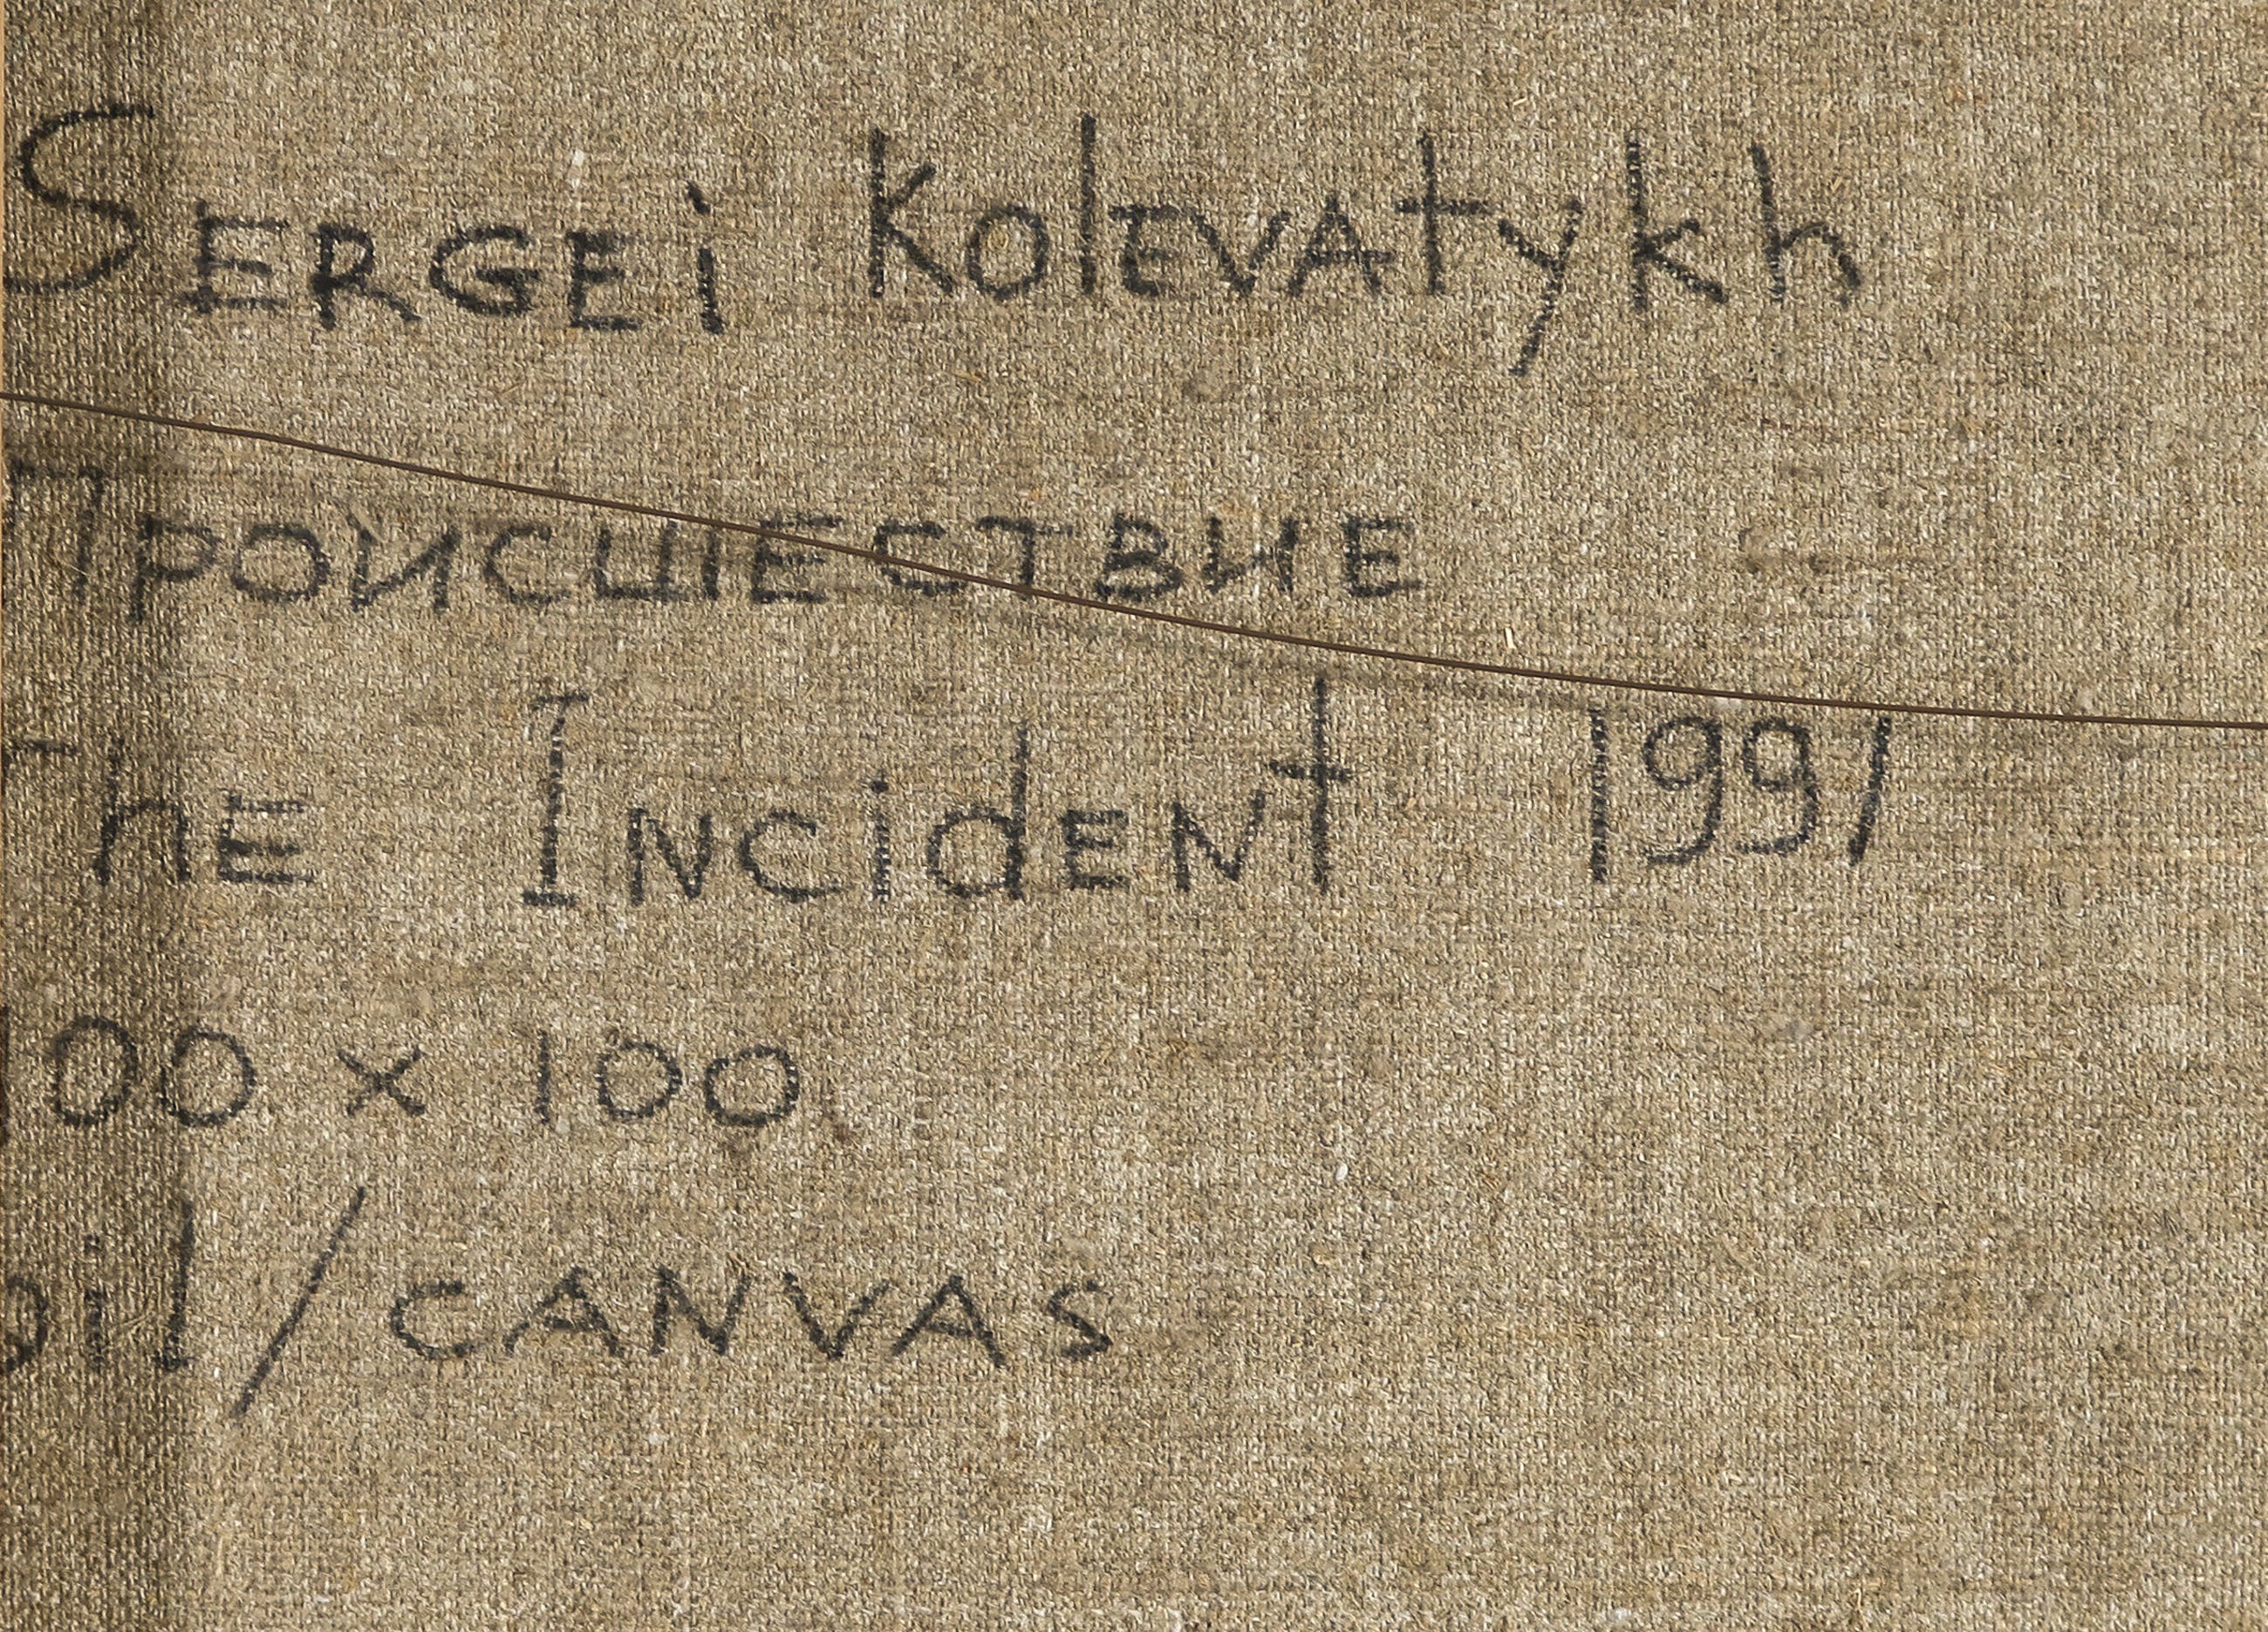 SERGEi KolEVAtykh
ПРОИСШЕСТВИЕ
ThE INCidENt 1991
00 x 100
oil/CANVAS